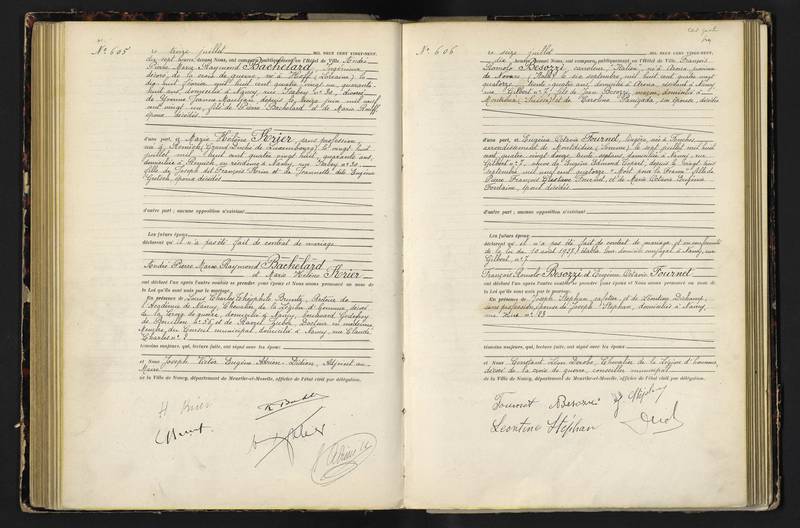 N° 605
Le treize juillet MIL NEUF CENT VINGT-NEUF,
dix sept heures, devant Nous, ont comparu publiquement en l'Hôtel de Ville, André
Pierre Marie Raymond Bachelard, Ingénieur
décoré de la croix de guerre, né à (Lorraine) le
février mil huit cent quatre vingt un, quarante
huit ans, domicilié à Nancy, rue Isabey n° 30, divorcé
de Yvonne Jeanne depuis le treize juin mil neuf
cent vingt fils de Pierre Bachelard et de Marie
époux décédés
d'une part, et Marie Hélène Krier, sans profession,
née à Remich (Grand Duché de Luxembourg) le vingt huit
juillet mil huit cent quatre vingt huit, quarante ans,
domiciliée à Remich, en résidence à Nancy, rue Isabey n° 30
fille de Joseph dit François Krier et de Jeannette dite Eugénie
époux décédés
d'autre part ; aucune opposition n'existant
Les futurs époux
déclarent qu'il n'a pas été fait de contrat de mariage
André Pierre Marie Raymond Bachelard
et Marie Hélène Krier
ont déclaré l'un après l'autre vouloir se prendre pour époux et Nous avons prononcé au nom de
la Loi qu'ils sont unis par le mariage.
En présence de Louis Charles Théophile Bruntz, Recteur de
l'Académie de Nancy, Chevalier de la Légion d'honneur, décoré
de la Croix de guerre, domicilié à Nancy, boulevard Godefroy
de Bouillon n° et de Docteur en médecine,
Membre du Conseil municipal, domicilié à Nancy, rue Claude
Charles n° 8
témoins majeurs, qui, lecture faite, ont signé avec les époux
et Nous Joseph Victor Eugène Adrien Adjoint au
Maire
de la Ville de Nancy, département de Meurthe-et-Moselle, officier de l'état civil par délégation.
H Krier
N° 606
Le seize juillet MIL NEUF CENT VINGT-NEUF,
dix heures, devant Nous, ont comparu publiquement en l'Hôtel de Ville, François
Romolo Besozzi, carreleur, Italien, né à Arona province
de Novare Italie, le six septembre mil huit cent quatre vingt
quatorze, trente quatre ans, domicilié à Arona, résidant à Nancy
rue Gilbert n° 7, fils de Jean Besozzi, maçon, domicilié à
(Suisse) et de Caroline son épouse, décédée
d'une part, et Eugénie Octavie Fournet, lingère, née à
arrondissement de Montdidier (Somme), le sept juillet mil huit
cent quatre vingt douze, trente septans, domiciliée à Nancy, rue
Gilbert n° 7, veuve de Eugène Edmond depuis le vingt trois
septembre mil neuf cent quatorze "Mort pour la France" fille de
Pierre François Fournet, et de Marie Octavie Eugénie
époux décédés
d'autre part ; aucune opposition n'existant
Les futurs époux
déclarent qu'il n'a pas été fait de contrat de mariage et en conformité
de la loi du 10 août 1927, établir leur domicile conjugal à Nancy, rue
Gilbert n° 7
François Romolo Besozzi et Eugénie Octavie Fournet
ont déclaré l'un après l'autre vouloir se prendre pour époux et Nous avons prononcé au nom de
la Loi qu'ils sont unis par le mariage.
En présence de Joseph Stéphan, et de Léontine
sans profession, épouse de Joseph Stéphan, domiciliés à Nancy,
rue n° 83
témoins majeurs, qui, lecture faite, ont signé avec les époux
et Nous Constant Chevalier de la Légion d'honneur,
décoré de la croix de guerre, conseiller municipal
de la Ville de Nancy, département de Meurthe-et-Moselle, officier de l'état civil par délégation.
Fournet Besozzi J Stéphan
Léontine Stéphan